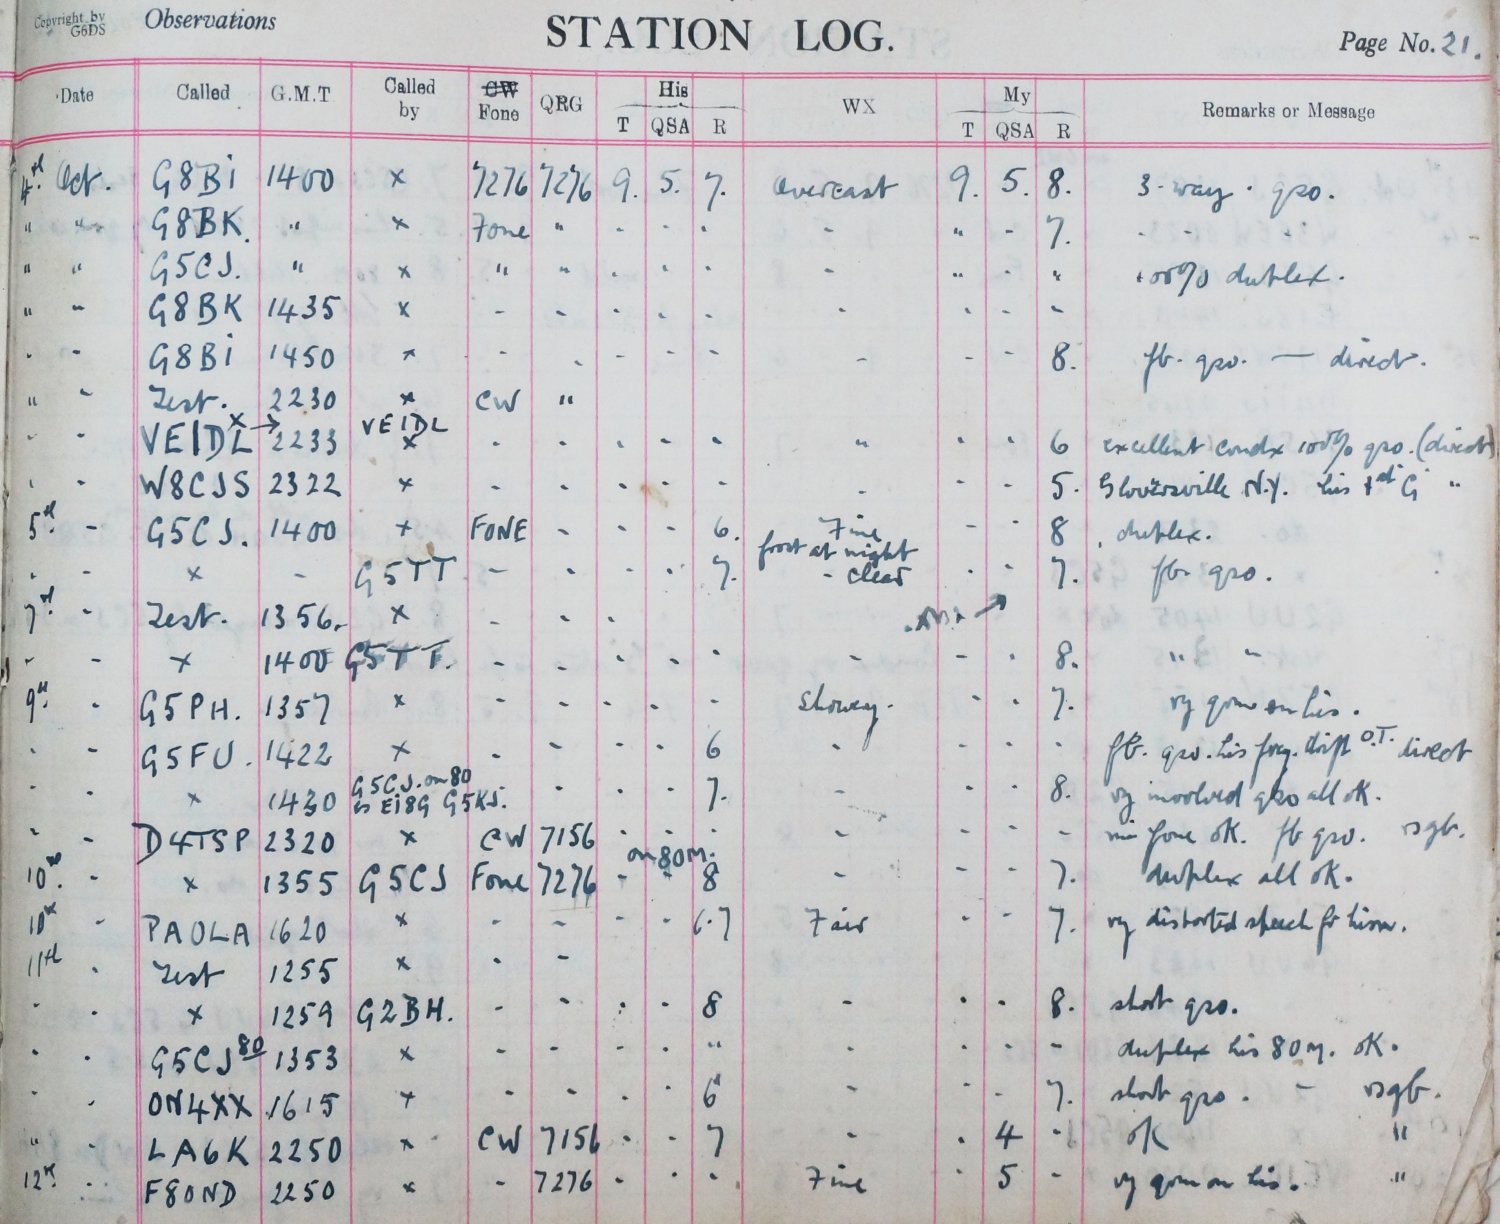 Copyright by G6DS Observations STATION LOG. Page No. 21.
Date Called G.M.T Called by CW Fone QRG His T QSA R WX My T QSA R Remarks or Message
4th Oct. G8Bi 1400 x 7276 7276 9. 5. 7. Overcast 9. 5. 8. 3-way · qso.
" " G8BK. " x Fone " - - - - " - 7. - - - -
" " G5CJ. " x " " - - - - " - " 100% duplex.
" " G8BK 1435 x - - - - - - - - -
- - G8Bi 1450 x - - - - - - - - 8. fb. qso. — direct.
" - Test. 2230 x CW "
- - VE1DL x → 2233 VE1DL x - - - - - " - - 6 excellent condx 100% qso. (direct)
- - W8CJS 2322 x - - - - - - - - 5. Gloversville N.Y. his 1st G "
5th - G5CJ. 1400 x FONE - - - 6. Fine - - 8 duplex.
frost at night
- - x - G5TT - - - - 7. - clear - - 7. fb. qso.
7th - Test. 1356. x - - -
- - x 1400 G5TT. - - - - - - - - 8. " -
9th - G5PH. 1357 x - - - - - Showery. - - 7. vy qrm on his.
- - G5FU. 1422 x - - - - 6 - - - - fb. qso. his freq. drift O.T. direct
- - x 1430 G5CJ. on 80 es Ei8G G5KJ. - - - - 7. - - - 8. vy involved qso all ok.
- - D4TSP 2320 x CW 7156 - - - - - - - fone OK. fb qso. rsgb.
on 80 m.
10th - x 1355 G5CJ Fone 7276 - - 8 - - - 7. duplex all ok.
10th - PAOLA 1620 x - - - - 6.7 Fair - - 7. vy distorted speech fr him.
11th - Test 1255 x - -
- - x 1259 G2BH. - - - - 8 - - - 8. short qso.
- - G5CJ 80 1353 x - - - - " - - - - duplex his 80 m. ok.
- - ON4XX 1615 x - - - - 6 - - - 7. short qso. - rsgb.
" - LA6K 2250 x CW 7156 - - 7 - - 4 - OK "
12th - F8OND 2250 x - 7276 - - - Fine - 5 - vy qrm on his. "